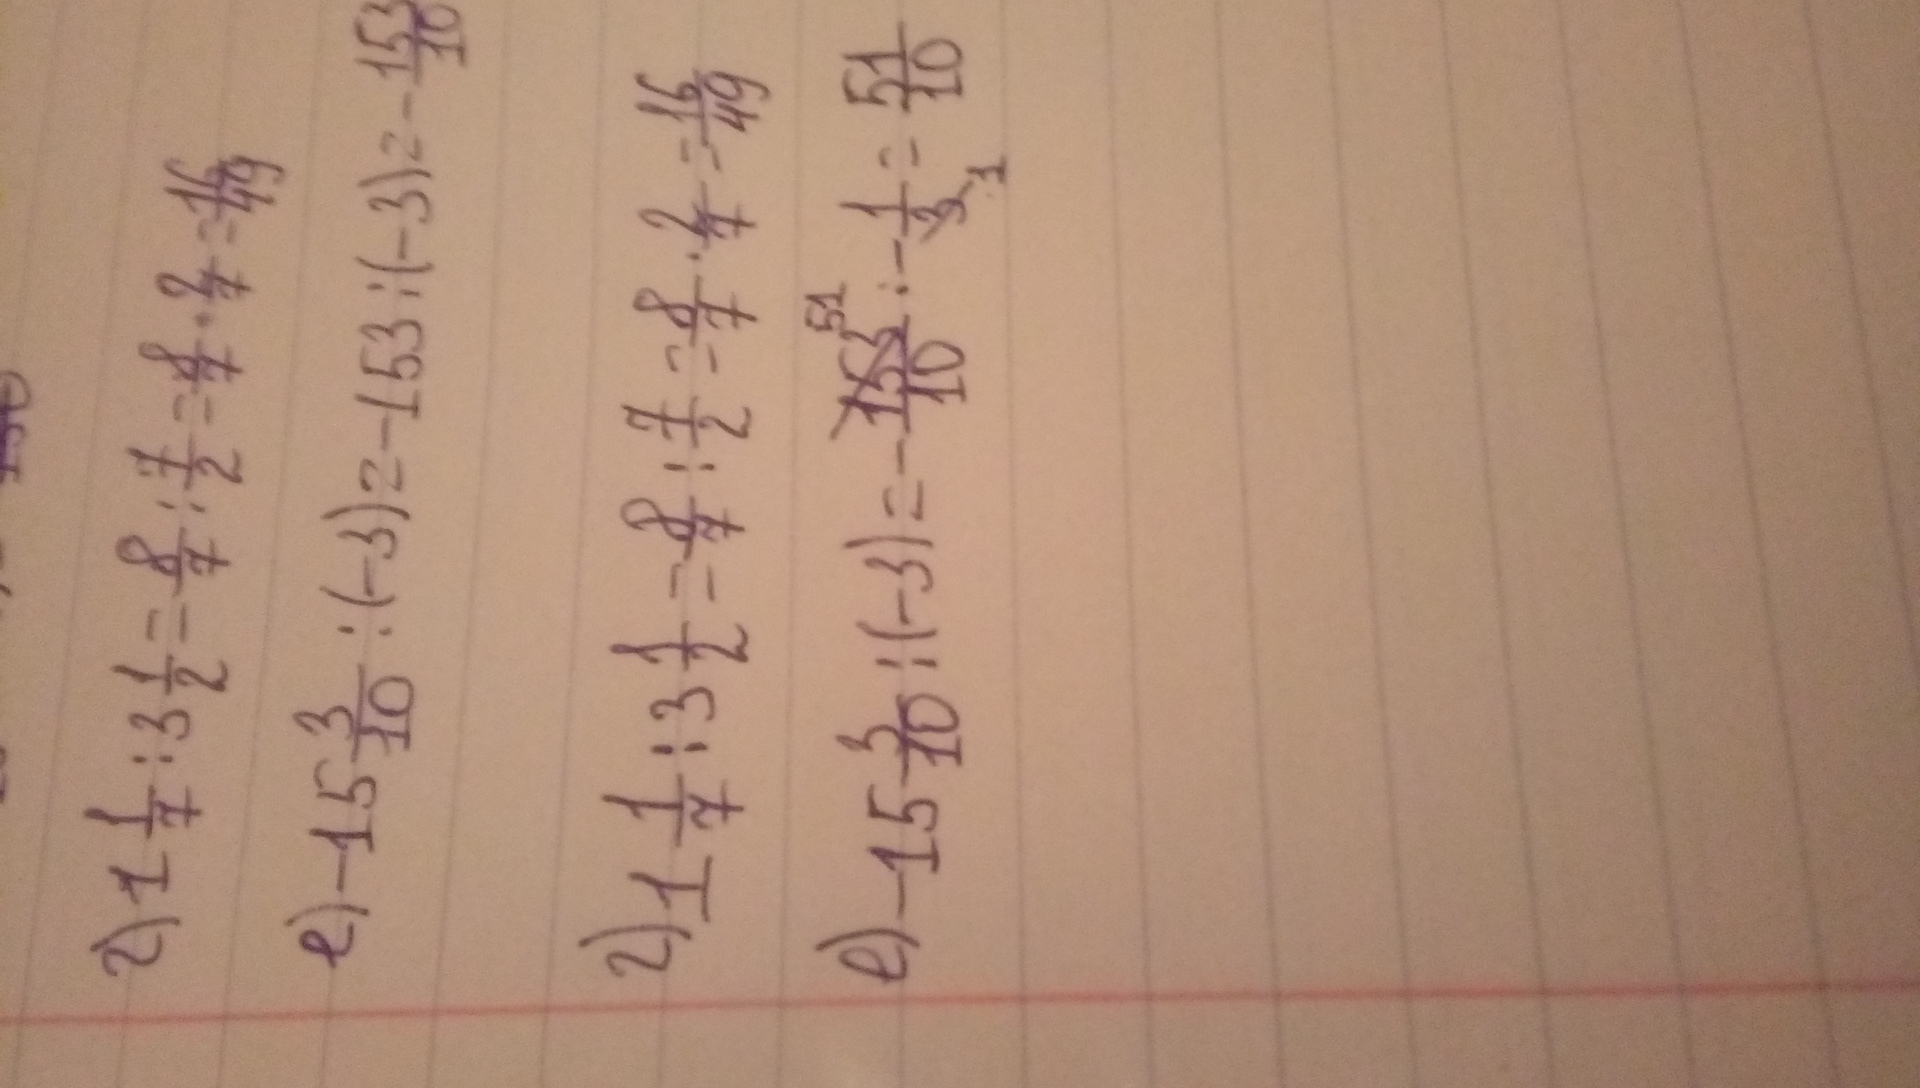 г) 1 1/7 : 3 1/2 = 8/7 : 7/2 = 8/7 · 2/7 = 16/49
е) -15 3/10 : (-3) = -153 : (-3) = -153/10
г) 1 1/7 : 3 1/2 = 8/7 : 7/2 = 8/7 · 2/7 = 16/49
е) -15 3/10 : (-3) = -153/10 : -1/3 = 51/10
51
1